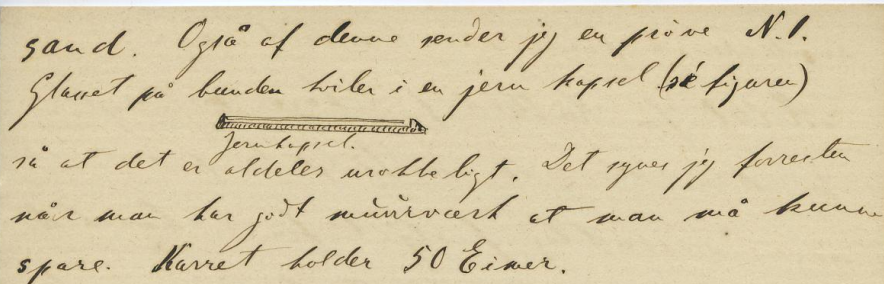 sand. Også af denne sender jeg en pröve N. 1.
Glasset på bunden hviler i en jern kapsel (sé figuren)
Jernkapsel.
så at det er aldeles urokkeligt. Det synes jeg forresten
når man har godt mūūrværk at man må kunne
spare. Karret holder 50 Eimer.